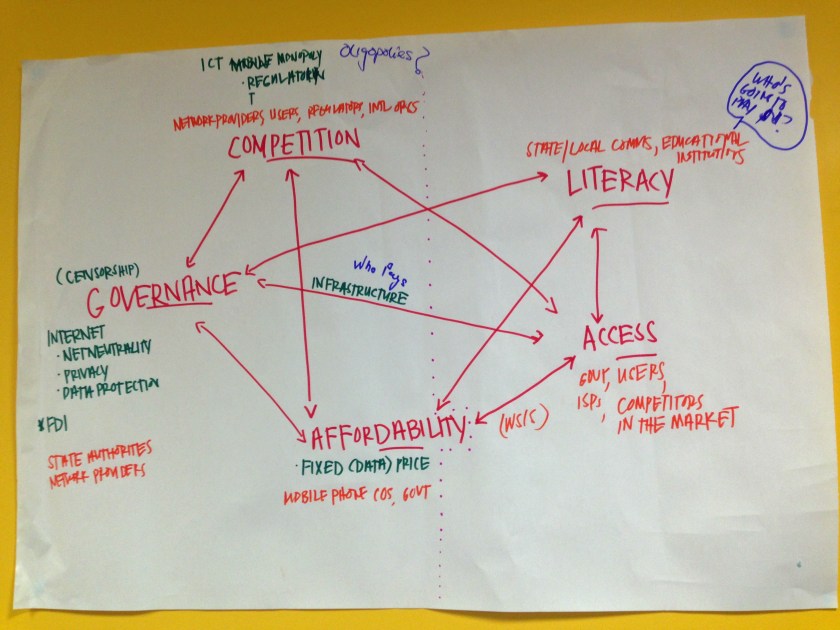 ICT MOBILE MONOPOLY
oligopolies?
· REGULATION
T
NETWORK PROVIDERS, USERS, REGULATORS, INTL ORGS
COMPETITION
WHO'S
GOING TO
PAY
STATE/LOCAL COMMS, EDUCATIONAL
INSTITUTITS
LITERACY
(CENSORSHIP)
GOVERNANCE
Who Pays
INFRASTRUCTURE
INTERNET
· NETNEUTRALITY
· PRIVACY
· DATA PROTECTION
*FDI
STATE AUTHORITES
NETWORK PROVIDERS
ACCESS
GOVT, USERS,
ISPs, COMPETITORS
IN THE MARKET
AFFORDABILITY
(WSIS)
· FIXED (DATA) PRICE
MOBILE PHONE COS, GOVT